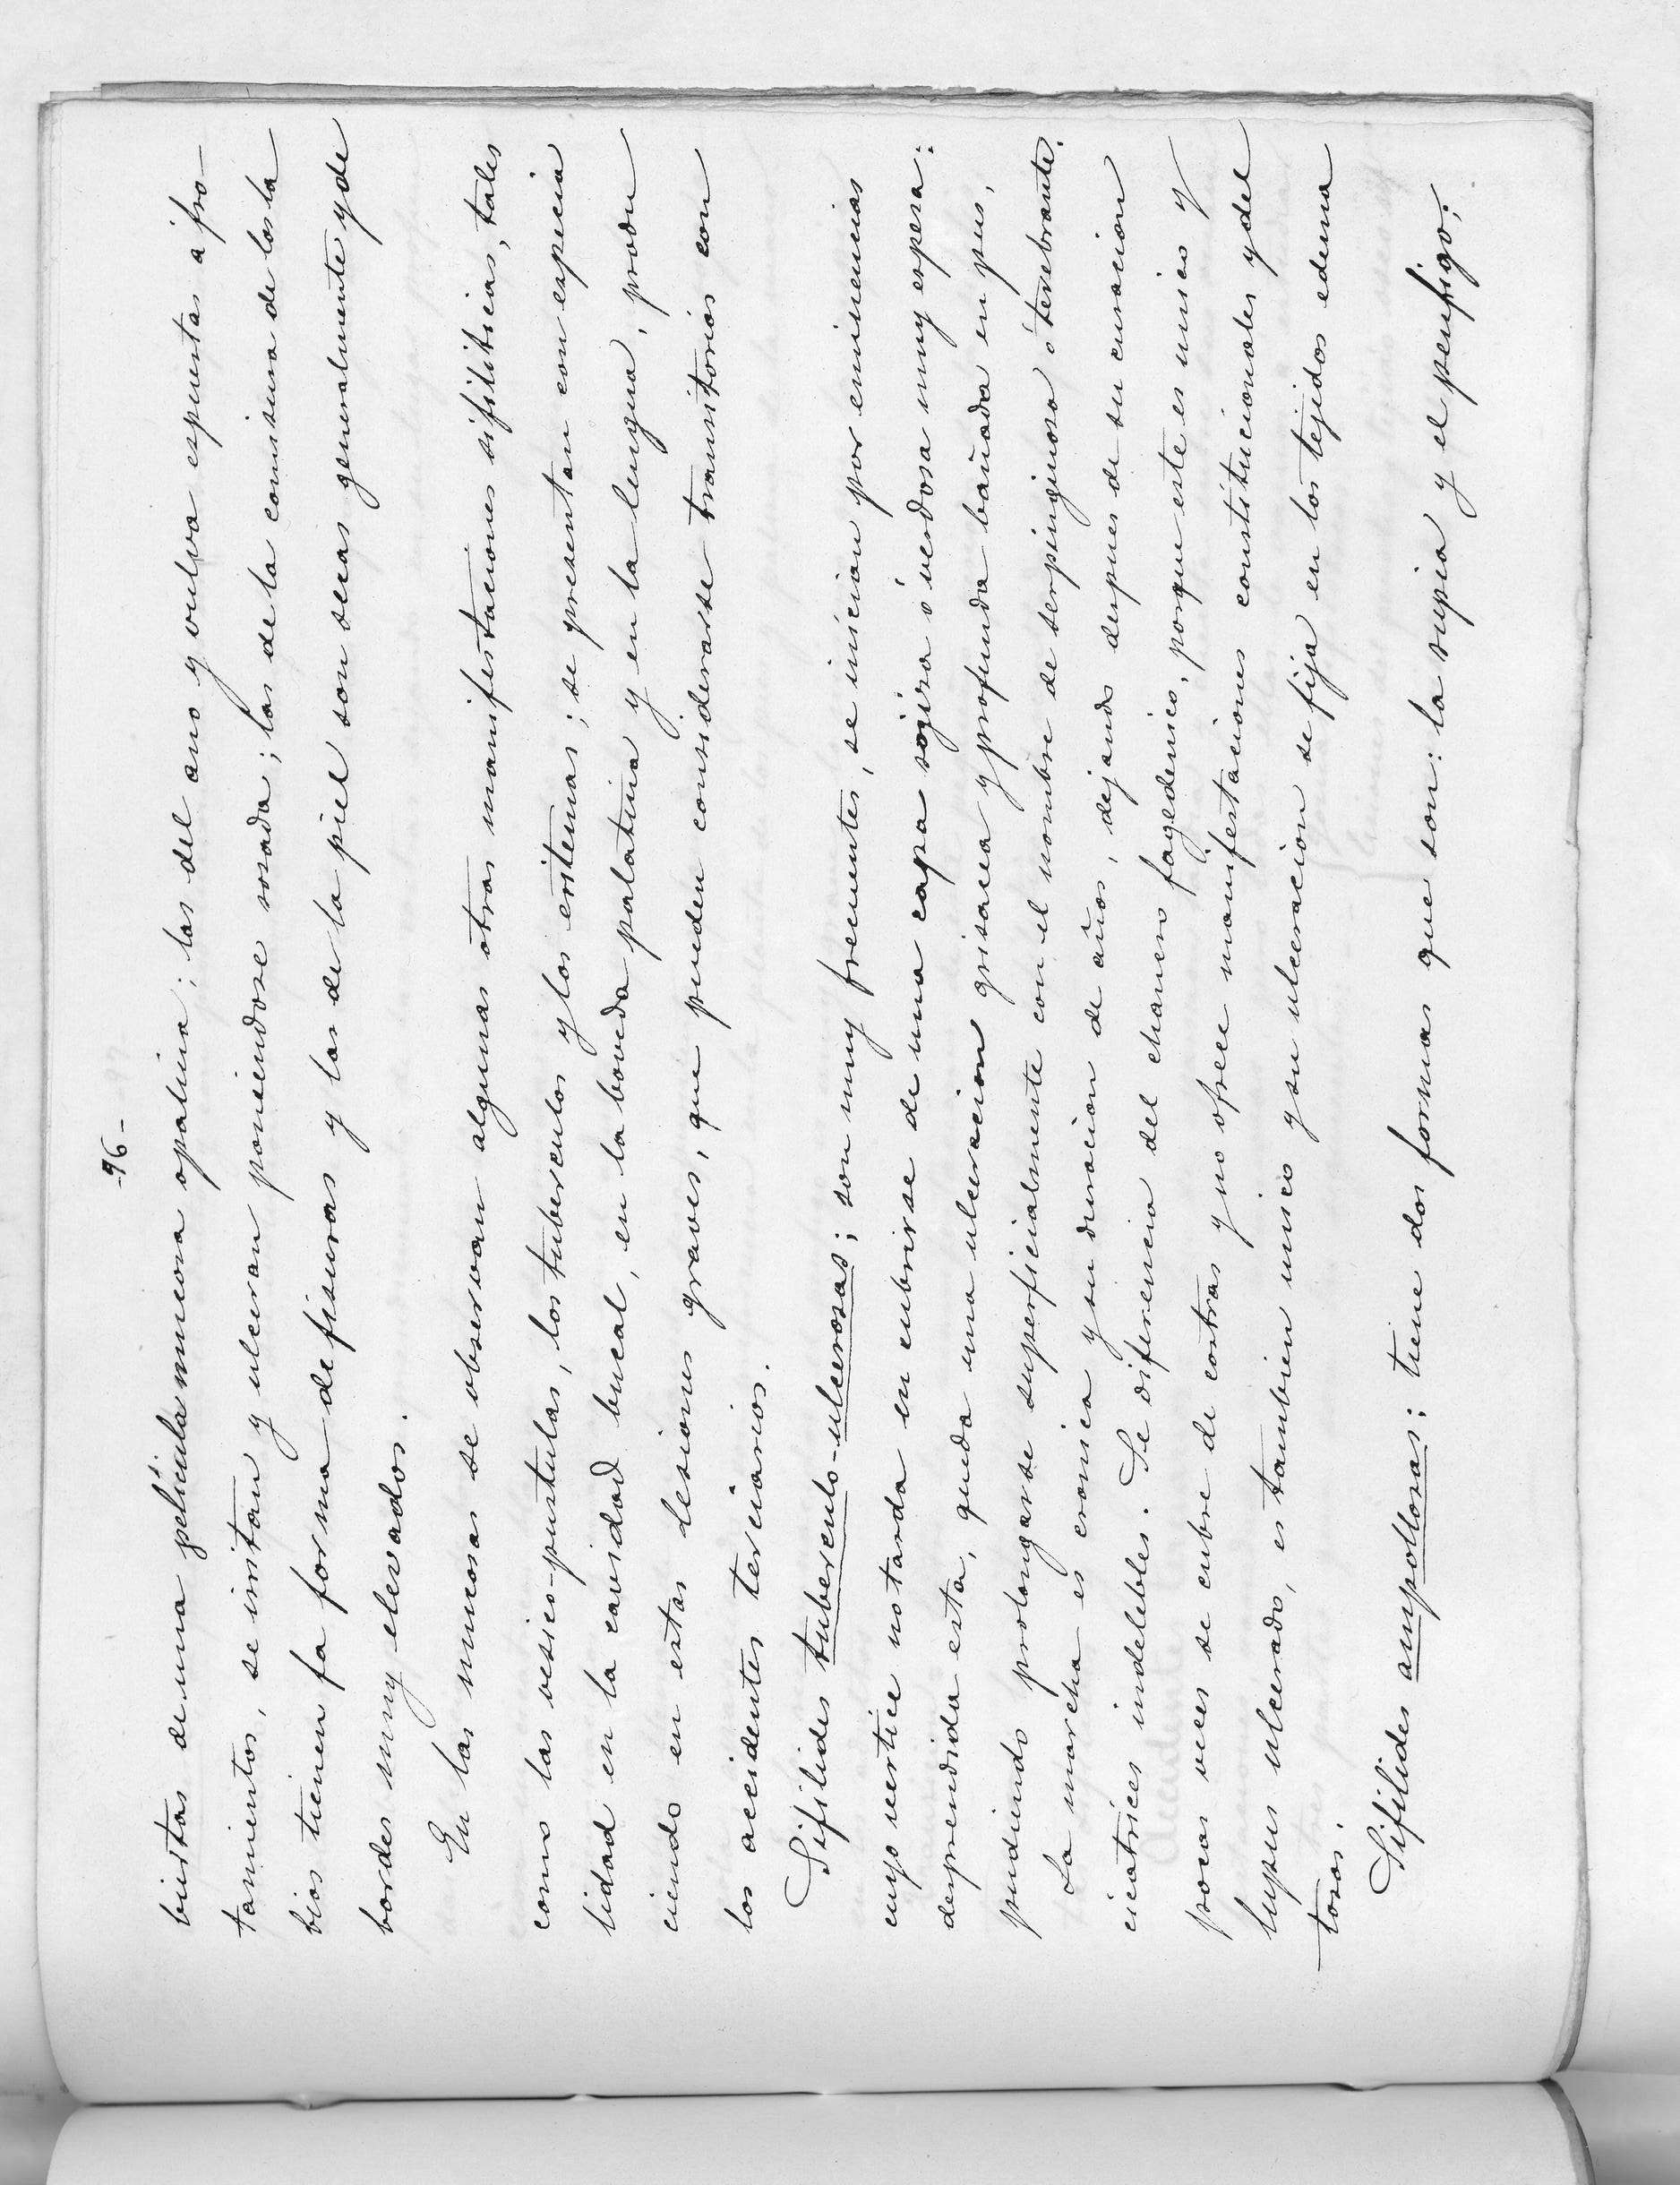 -96-
biertas de una película mucosa opalina; las del ano y vulva espuestas á fro-
tamientos, se irritan y ulceran poniendose rosada; las de la comisura de los la
bios tienen la forma de fisuras y las de la piel son secas generalmente y de
bordes muy elevados.
En las mucosas se observan algunas otras manifestaciones sifiliticas, tales
como las vesico-pustulas, los tuberculos y los eritemas; se presentan con especia
lidad en la cavidad bucal, en la boveda palatina y en la lengua, produ
ciendo en estas lesiones graves, que pueden considerarse transitorios con
los accidentes terciarios.
Sifilides tuberculo-ulcerosas; son muy frecuentes, se inician por eminencias
cuyo vertice no tarda en cubrirse de una capa rojiza ó verdosa muy espesa:
desprendida esta, queda una ulceracion grisacea y profunda bañada en pus,
pudiendo prolongarse superficialmente con el nombre de serpinginosa ó terebrante.
La marcha es cronica y su duracion de años, dejando despues de su curacion
cicatrices indelebles. Se diferencia del chancro fagedenico, porque este es unico y
pocas veces se cubre de costras y no ofrece manifestaciones constitucionales y del
lupus ulcerado, es tambien unico y su ulceracion se fija en los tejidos edema
tosos.
Sifilides ampollosas; tiene dos formas que son: la rupia y el penfigo;